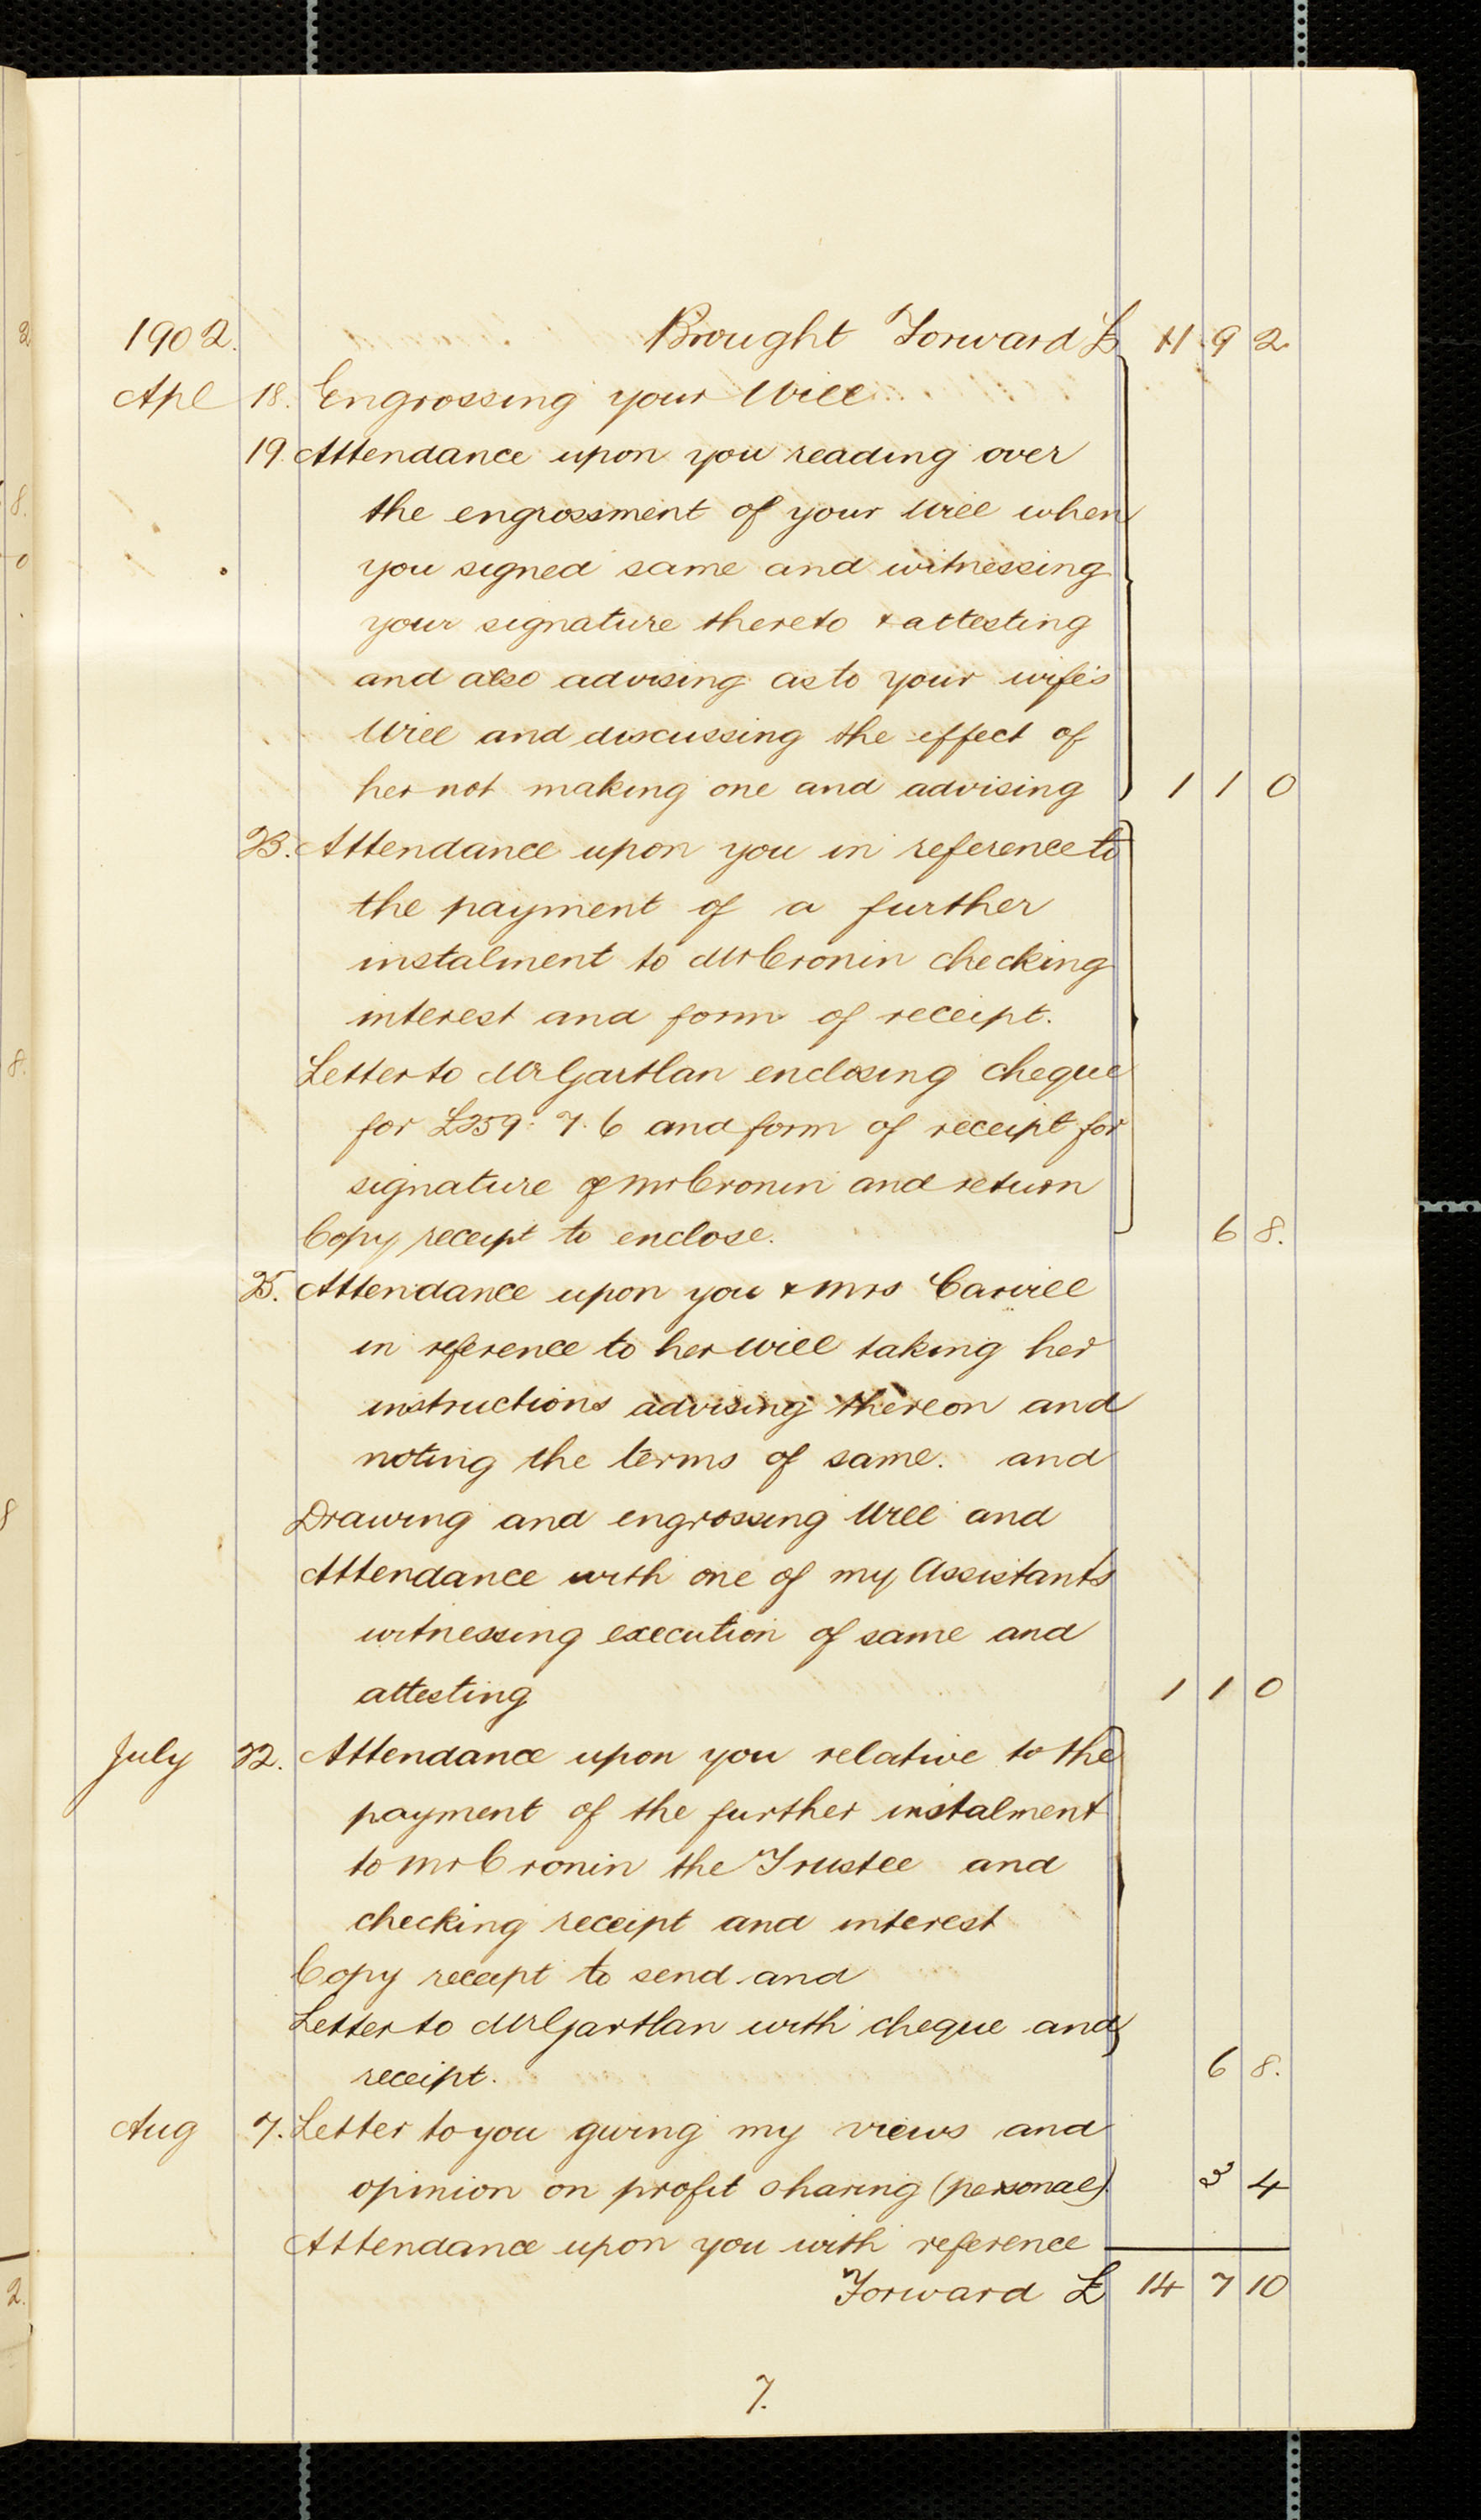 1902. Brought Forward £ 11 9 2.
Apl 18. Engrossing your Will
19. Attendance upon you reading over
the engrossment of your Will when
you signed same and witnessing
your signature thereto & attesting
and also advising as to your wife's
Will and discussing the effect of
her not making one and advising 1 1 0
23. Attendance upon you in reference to
the payment of a further
instalment to Mr Cronin checking
interest and form of receipt.
Letter to Mr Gartlan enclosing cheque
for £259. 7. 6 and form of receipt for
signature of Mr Cronin and return
Copy receipt to enclose. 6 8.
25. Attendance upon you & Mrs Carvill
in reference to her Will taking her
instructions advising thereon and
noting the terms of same. and
Drawing and engrossing Will and
Attendance with one of my Assistants
witnessing execution of same and
attesting 1 1 0
July 22. Attendance upon you relative to the
payment of the further instalment
to Mr Cronin the Trustee and
checking receipt and interest
Copy receipt to send and
Letter to Mr Gartlan with cheque and
receipt. 6 8.
Aug 7. Letter to you giving my views and
opinion on profit sharing (personal) 3 4
Attendance upon you with reference
Forward £ 14 7 10
7.